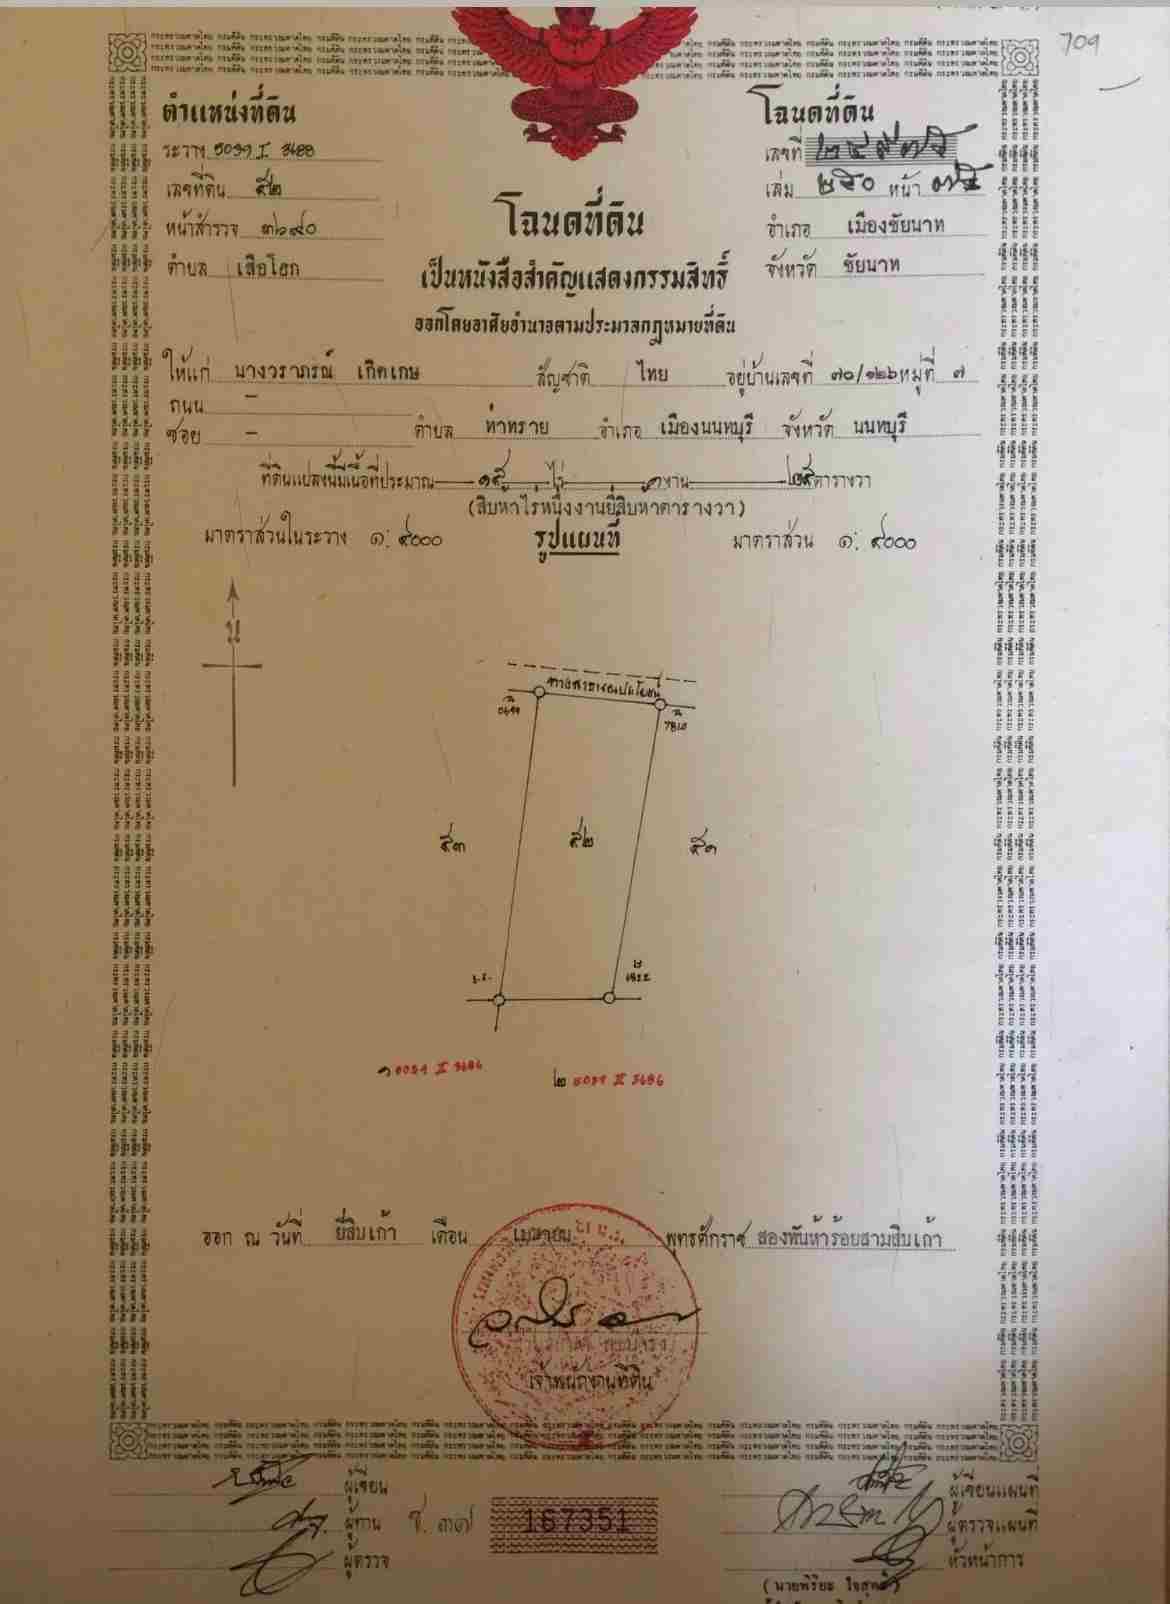 709
ตำแหน่งที่ดิน
โฉนดที่ดิน
ระวาง 5039 I 3688
เลขที่
เลขที่ดิน ๕๒
เล่ม ๒๕๐ หน้า ๗๕
หน้าสำรวจ ๓๖๙๐
โฉนดที่ดิน
อำเภอ เมืองชัยนาท
ตำบล เสือโฮก
เป็นหนังสือสำคัญแสดงกรรมสิทธิ์
จังหวัด ชัยนาท
ออกโดยอาศัยอำนาจตามประมวลกฎหมายที่ดิน
ให้แก่ นางวราภรณ์ เกิดเกษ สัญชาติ ไทย อยู่บ้านเลขที่ ๗๐/๑๒๖ หมู่ที่ ๗
ถนน -
ซอย - ตำบล ท่าทราย อำเภอ เมืองนนทบุรี จังหวัด นนทบุรี
ที่ดินแปลงนี้มีเนื้อที่ประมาณ ๑๕ ไร่ ๑ งาน ๒๕ ตารางวา
(สิบห้าไร่หนึ่งงานยี่สิบห้าตารางวา)
มาตราส่วนในระวาง ๑:๔๐๐๐ รูปแผนที่ มาตราส่วน ๑:๔๐๐๐
น
ทางสาธารณประโยชน์
๕๓ ๕๒ ๕๑
๑ 5039 II 3686 ๒ 5039 II 3686
ออก ณ วันที่ ยี่สิบเก้า เดือน เมษายน พุทธศักราช สองพันห้าร้อยสามสิบเก้า
เจ้าพนักงานที่ดิน
ผู้เขียน
ผู้เขียนแผนที่
ผู้ทาน ช. ๓๗ 167351
ผู้ตรวจแผนที่
ผู้ตรวจ
หัวหน้าการ